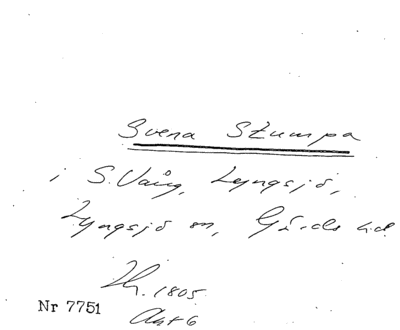 Svena Stumpa
i S. Vång, Lyngsjö,
Lyngsjö sn, Gärds hd.
1805.
Nr 7751
Akt 6